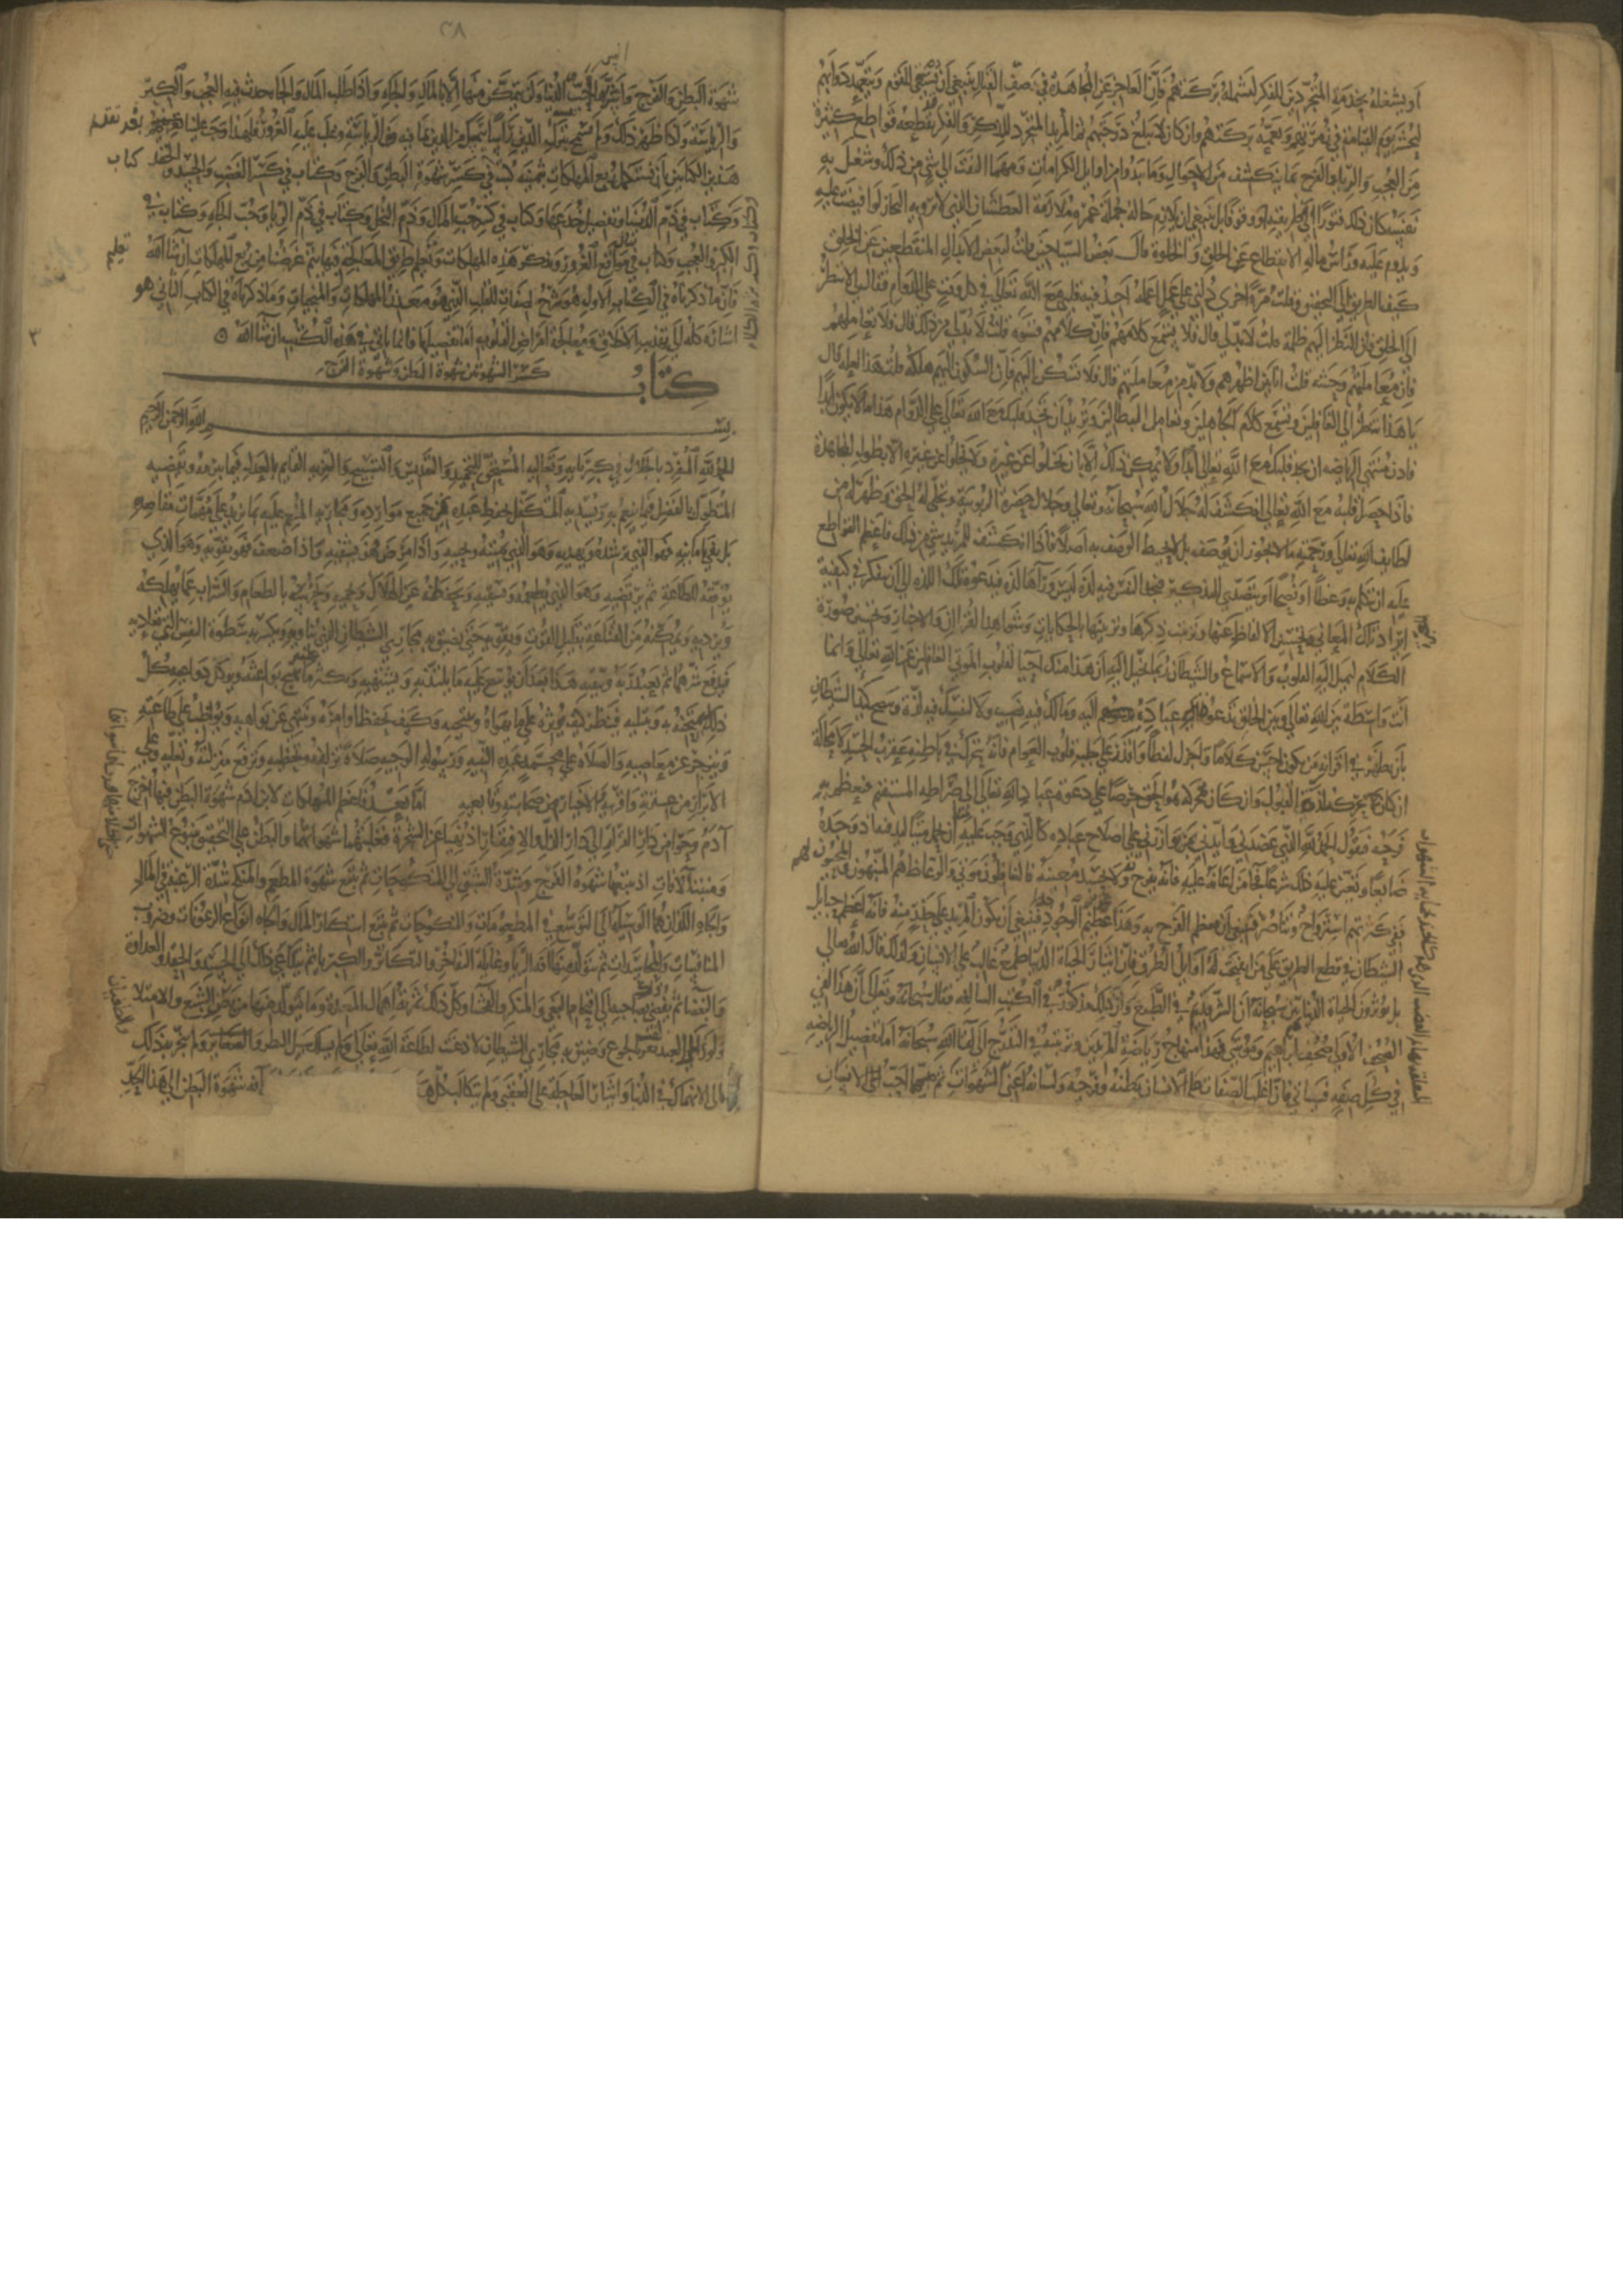 او يشغله بخدمة المتجردين للفكر لتشمله بركتهم فان العاجز عن المجاهدة في صف القتال ينبغي ان يسقي القوم ويتعهد دوابهم
ليحشر يوم القيامة في زمرتهم وتعمه بركتهم وان كان لا يبلغ درجتهم ثم المريد المتجرد للذكر والفكر قد يقطعه قواطع كثيرة
من العجب والريا والفرح بما ينكشف من الاحوال وما يبدوا من اوايل الكرامات ومهما التفت الي شي من ذلك وشغل به
نفسه كان ذلك فتورا في طريقه ووقوفا بل ينبغي ان يلازم حاله جملة عمره ملازمة العطشان الذي لا ترويه البحار لو افيضت عليه
ويدوم عليه وراس ماله الانقطاع عن الخلق والخلوة قال بعض السياحين قلت لبعض الابدال المنقطعين عن الخلق
كيف الطريق الي التحقيق وقلت مرة اخرى دلني على عمل اعمله اجد فيه قلبي مع الله تعالى في كل وقت على الدوام فقال لي لا تنظر
الى الخلق فان النظر اليهم ظلمة قلت لا بد لي قال فلا تسمع كلامهم فان كلامهم قسوة قلت لا بد لي من ذلك قال فلا تعاملهم
فان معاملتهم وحشة قلت انا بين اظهرهم ولا بد من معاملتهم قال فلا تسكن اليهم فان السكون اليهم هلكة قلت هذا لعله قال
يا هذا اتنظر الى الغافلين وتسمع كلام الجاهلين وتعامل البطالين وتريد ان تجد قلبك مع الله تعالى على الدوام هذا ما لا يكون ابدا
فاذن منتهى الرياضه ان يجد قلبك مع الله تعالى ابدا ولا يمكن ذلك الا بان يخلوا عن غيره ولا يخلوا عن غيره الا بطول المجاهدة
فاذا حصل قلبه مع الله تعالى انكشف له جلال الله سبحانه وتعالى وجلال حضرة الربوبية وتجلى له الحق وظهر له من
لطايف الله تعالى ورحمته ما لا يجوز ان يوصف بل لا يحيط الوصف به اصلا فاذا انكشف للمريد شي من ذلك فاعظم القواطع
عليه ان يتكلم به وعظا او نصحا او يتصدى للتذكير فيجد النفس فيه لذة ليس ورآها لذة فتدعوه تلك اللذه الى ان يتفكر في كيفية
ايراد تلك المعاني وتحسين الالفاظ عنها وترتيب ذكرها وتزيينها بالحكايات وشواهد القرآن والاخبار وتحسين صورة
الكلام لتميل اليه القلوب والاسماع والشيطان ربما يخيل اليه ان هذا منك احيا لقلوب الموتى الغافلين عن الله تعالى وانما
انت واسطة بين الله تعالى وبين الخلق تدعو عباده اليه ومالك فيه نصيب ولا لنفسك فيه لذة ويتضح كيد الشيطان
بان يظهر في اقرانه من يكون احسن كلاما واجزل لفظا واقدر على جلب قلوب العوام فانه يتحرك في باطنه عقرب الحسد لا محالة
ان كان محركه لذة القبول وان كان محركه هو الحق حرصا على دعوة عباد الله تعالى الى صراطه المستقيم فيعظم به
فرحه فيقول الحمد لله الذي عضدني وايدني بمن وازرني على اصلاح عباده كالذي وجب عليه ان يحمل ميتا ليدفنه اذ وجده
ضايعا وتعين عليه ذلك شرعا فجا من اعانه عليه فانه يفرح به ولا يحسد معينه فالغافلون موتى والوعاظ هم المنبهون والمحيون لهم
ففي كثرتهم استرواح وتناصر فينبغي ان يعظم الفرح به وهذا عزيز الوجود جدا فينبغي ان يكون المريد على حذر منه فانه اعظم حبايل
الشيطان في قطع الطريق على من انفتحت له اوايل الطرق فان ايثار الحياة الدنيا طبع غالب على الانسان ولذلك قال الله تعالى
بل تؤثرون الحياة الدنيا ثم بين سبحانه ان الشر قديم في الطبع وان ذلك مذكور في الكتب السالفه فقال سبحانه وتعالى ان هذا لفي
الصحف الاولى صحف ابراهيم وموسى فهذا منهاج رياضة المريدين وترتيبه في التدرج الى لقا الله سبحانه اما تفصيل الرياضه
في كل صفه فسياتي فان اغلب الصفات على الانسان بطنه وفرجه ولسانه اعني الشهوات ثم الغضب الذي هو كالجند لحماية الشهوات
٣٨
شهوة البطن والفرج وانس بهما احب الدنيا ولم يتمكن منها الا بالمال والجاه واذا طلب المال والجاه حدث فيه العجب والكبر
والرياسة واذا ظهر ذلك لم تسمح نفسه بترك الدنيا راسا وتمسك من الدين بما فيه الرياسة وغلب عليه الغرور فلهذا وجب علينا بعد تقديم
هذين الكتابين ان نستكمل ربع المهلكات بثمنية كتب في كسر شهوة البطن والفرج وكتاب في كسر الغضب والحقد والحسد كتاب
وكتاب في ذم الدنيا وتفصيل خدعها وكتاب في كسر حب المال وذم البخل وكتاب في ذم الريا وحب الجاه وكتاب في
الكبر والعجب وكتاب في مواقع الغرور وبذكر هذه المهلكات وتعليم طريق المعالجة فيها يتم غرضنا من ربع المهلكات ان شا الله
فان ما ذكرناه في الكتاب الاول هو شرح لصفات القلب الذي هو معدن المهلكات والمنجيات وما ذكرناه في الكتاب الثاني هو
اشارة كلية الى تهذيب الاخلاق ومعالجة امراض القلوب اما تفصيلها فانما ياتي في هذه الكتب ان شا الله
كتاب كسر الشهوتين شهوة البطن وشهوة الفرج
بسم الله الرحمن الرحيم
الحمد لله المتفرد بالجلال في كبريايه وتعاليه المستحق للتحميد والتقديس والتسبيح والتنزيه القايم بالعدل فيما يبرمه ويقضيه
المتطول بالفضل فيما ينعم به ويسديه المتكفل بحفظ عبده في جميع موارده ومجاريه المنعم عليه بما يزيد على مهمات مقاصده
بل يفي بامانيه فهو الذي يرشده ويهديه وهو الذي يميته ويحييه واذا مرض فهو يشفيه واذا ضعف فهو يقويه وهو الذي
يوفقه للطاعة ثم يرتضيه وهو الذي يطعمه ويسقيه ويحفظه عن الهلاك ويحميه ويحرسه بالطعام والشراب عما يهلكه
ويرديه ويمكنه من القناعة بقليل القوت ويقويه حتى يضيق به مجاري الشيطان الذي يناويه ويكسر به سطوة النفس التي تعاديه
فيدفع شرهما ثم يعبد ربه ويتقيه هذا بعد ان يوسع عليه ما يلتذ به ويشتهيه ويكثر عليه ما يهيج بواعثه ويوكد دواعيه كل
ذلك يمتحنه به ويبتليه فينظر كيف يؤثره على ما يهواه وينتحيه وكيف يحفظ اوامره وينتهي عن نواهيه ويواظب على طاعته
وينزجر عن معاصيه والصلاة على محمد عبده النبيه ورسوله الوجيه صلاة تزلفه وتحظيه وترفع منزلته وتعليه وعلى
الابرار من عترته واقربيه والاخيار من صحابته وتابعيه اما بعد فاعظم المهلكات لابن ادم شهوة البطن فبها اخرج
آدم وحوا من دار القرار الى دار الذل والافتقار اذ نهيا عن الشجرة فغلبتهما شهواتهما والبطن على التحقيق ينبوع الشهوات
ومنبت الآفات اذ يتبعها شهوة الفرج وشدة الشبق الى المنكوحات ثم يتبع شهوة المطعم والمنكح شدة الرغبة في المال
والجاه اللذان هما الوسيلة الى التوسع في المطعومات والمنكوحات ثم يتبع استكثار المال والجاه انواع الرعونات وضروب
المنافسات والمحاسدات ثم يتولد منها آفة الريا وغايلة التفاخر والتكاثر والكبريا ثم يتداعى ذلك الى الحسد والحقد والعداوة
والبغضا ثم يفضي بصاحبه الى اقتحام البغي والمنكر والفحشا وكل ذلك ثمرة اهمال المعدة وما يتولد منها من بطر الشبع والامتلا
ولو ذلل العبد نفسه بالجوع وضيق به مجاري الشيطان لاذعنت لطاعة الله تعالى ولم تسلك سبيل البطر والطغيان ولم ينجر به ذلك
الى الانهماك في الدنيا وايثار العاجلة على العقبى ولم يتكالب كل هذا آفة شهوة البطن الى هذا الحد